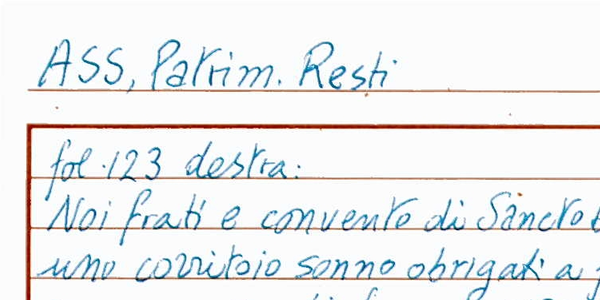 ASS, Patrim. Resti
fol. 123 destra:
Noi frati e convento di Sancto
uno corritoio sonno obrigati a